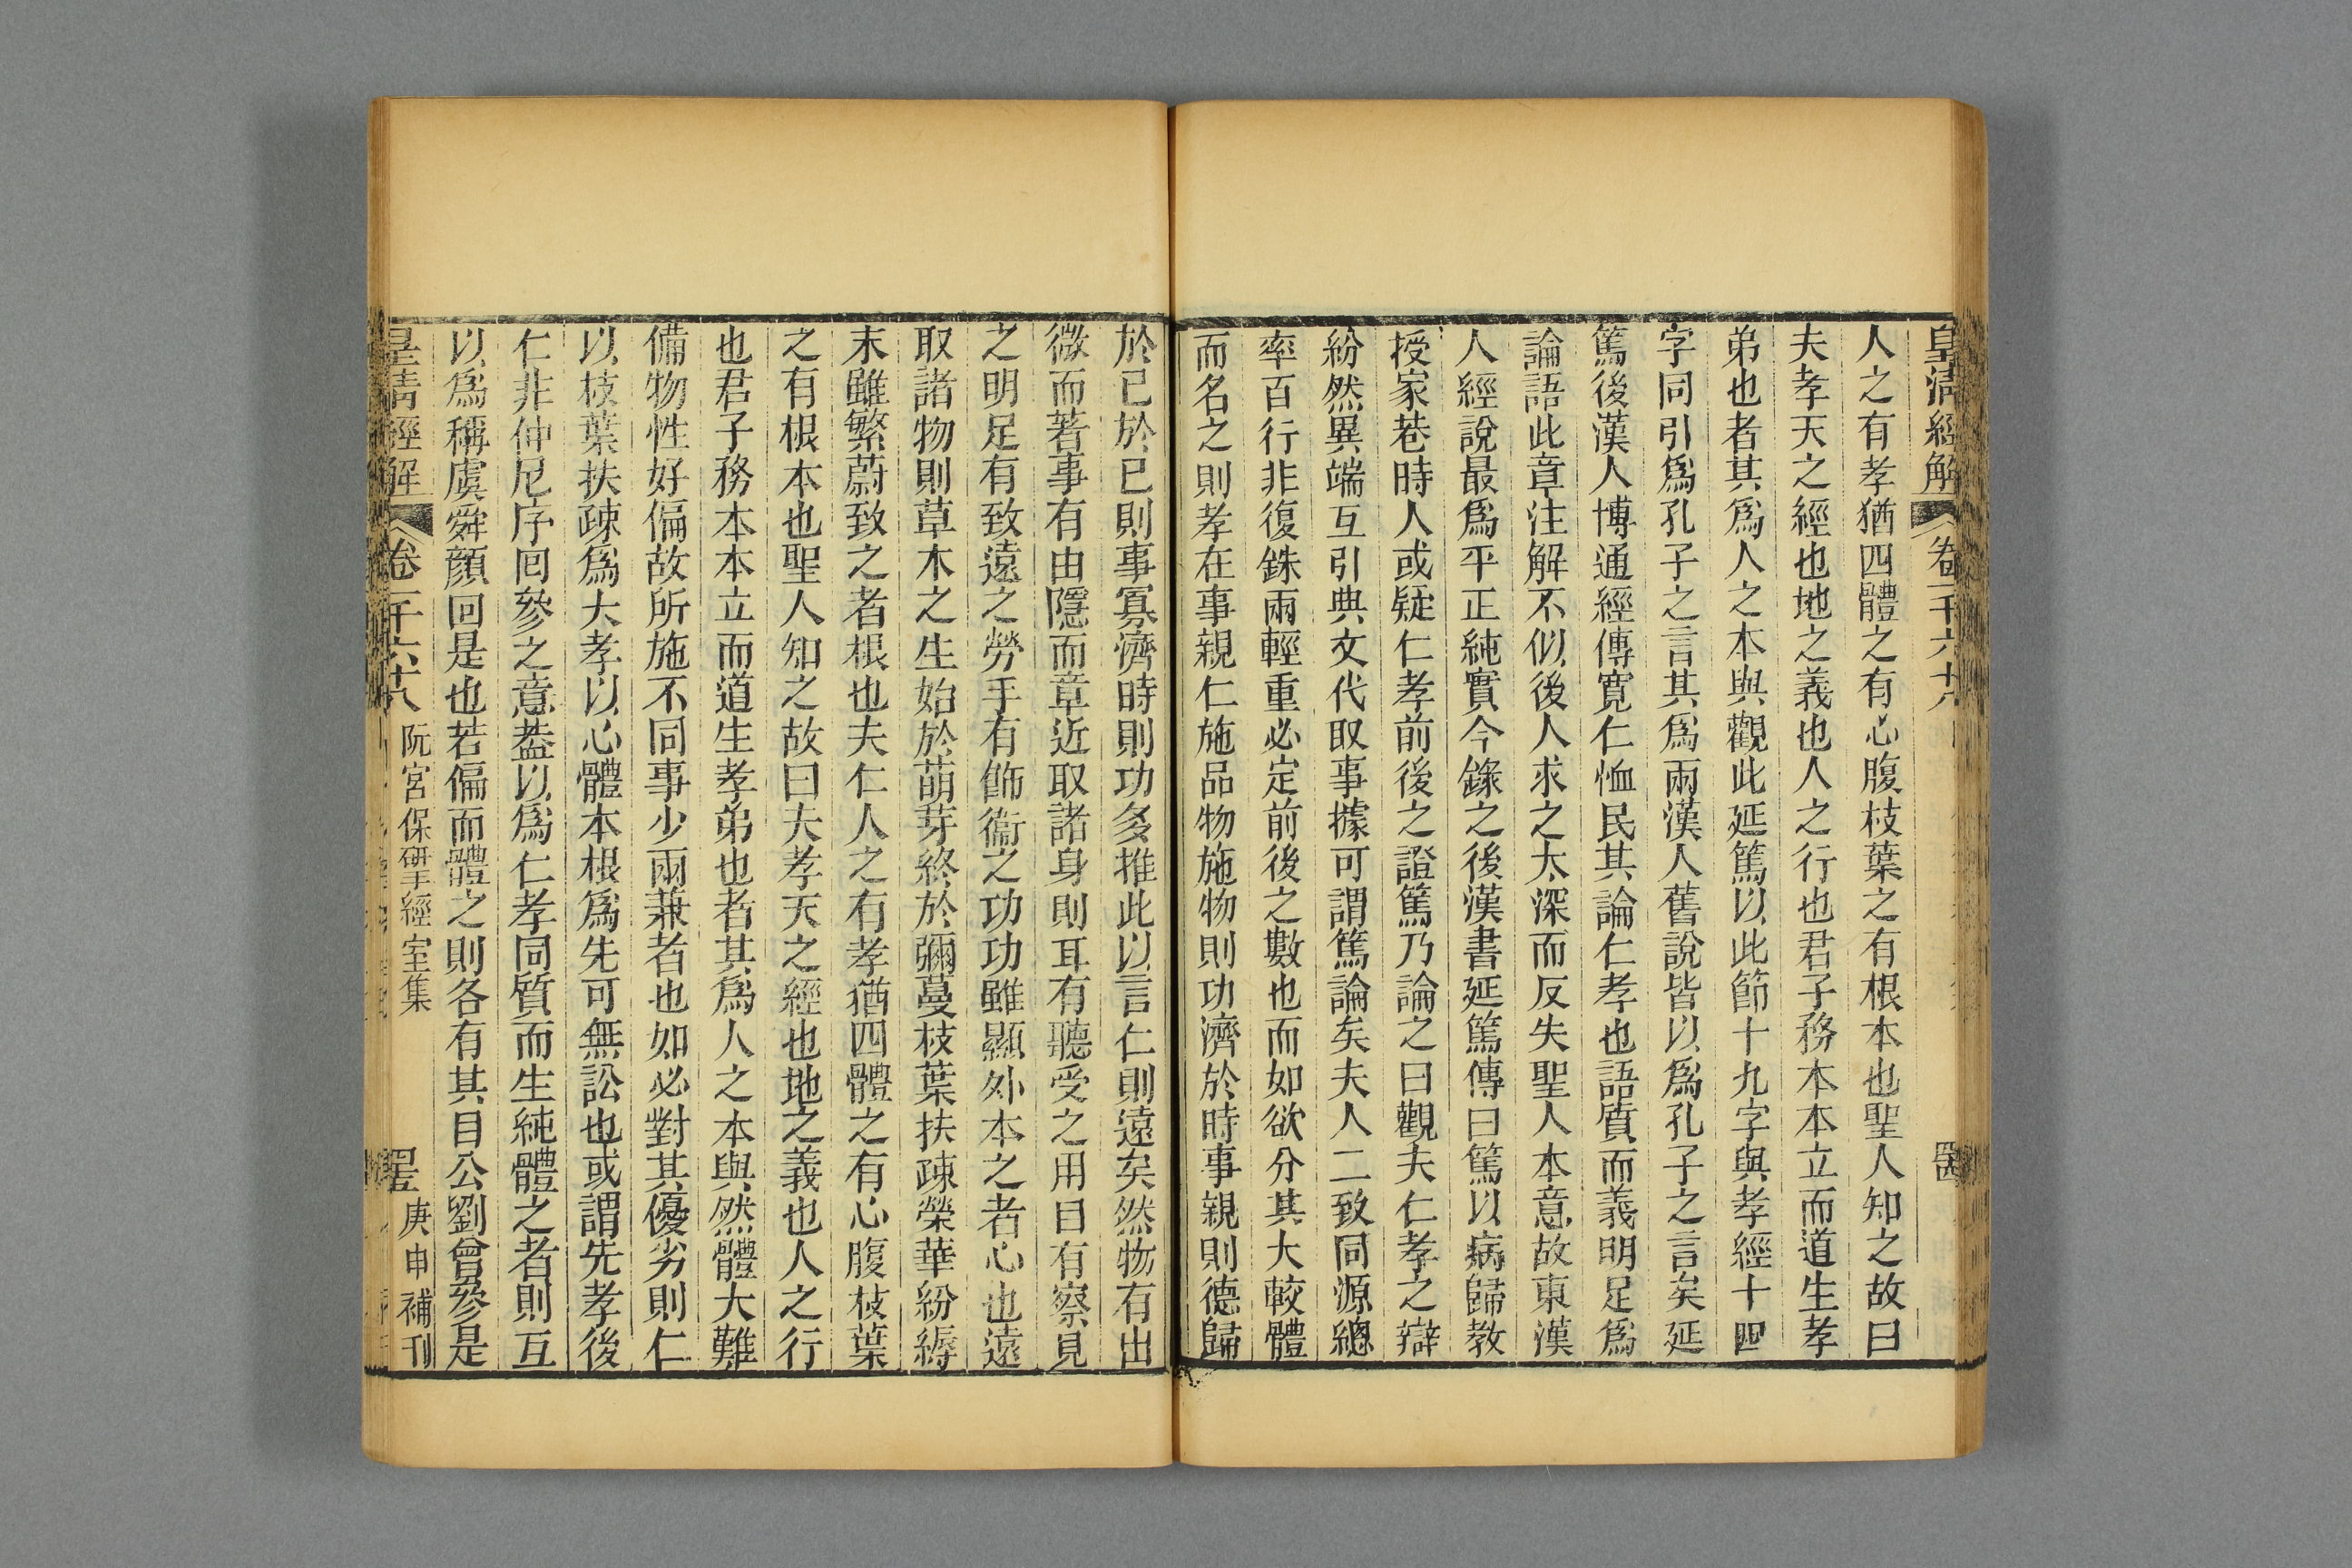 皇清經解 卷一千六十八
人之有孝猶四體之有心腹枝葉之有根本也聖人知之故曰
夫孝天之經也地之義也人之行也君子務本本立而道生孝
弟也者其爲人之本與觀此延篤以此節十九字與孝經十四
字同引爲孔子之言其爲兩漢人舊說皆以爲孔子之言矣延
篤後漢人博通經傳寬仁恤民其論仁孝也語質而義明足爲
論語此章注解不似後人求之太深而反失聖人本意故東漢
人經說最爲平正純實今錄之後漢書延篤傳曰篤以病歸教
授家巷時人或疑仁孝前後之證篤乃論之曰觀夫仁孝之辯
紛然異端互引典文代取事據可謂篤論矣夫人二致同源總
率百行非復銖兩輕重必定前後之數也而如欲分其大較體
而名之則孝在事親仁施品物施物則功濟於時事親則德歸
於已於已則事寡濟時則功多推此以言仁則遠矣然物有出
微而著事有由隱而章近取諸身則耳有聽受之用目有察見
之明足有致遠之勞手有飾衞之功功雖顯外本之者心也遠
取諸物則草木之生始於萌芽終於彌蔓枝葉扶疎榮華紛縟
末雖繁蔚致之者根也夫仁人之有孝猶四體之有心腹枝葉
之有根本也聖人知之故曰夫孝天之經也地之義也人之行
也君子務本本立而道生孝弟也者其爲人之本與然體大難
備物性好偏故所施不同事少兩兼者也如必對其優劣則仁
以枝葉扶疎爲大孝以心體本根爲先可無訟也或謂先孝後
仁非仲尼序囘參之意葢以爲仁孝同質而生純體之者則互
以爲稱虞舜顔回是也若偏而體之則各有其目公劉曾參是
皇清經解 卷一千六十八 阮宮保揅經室集 庚申補刊